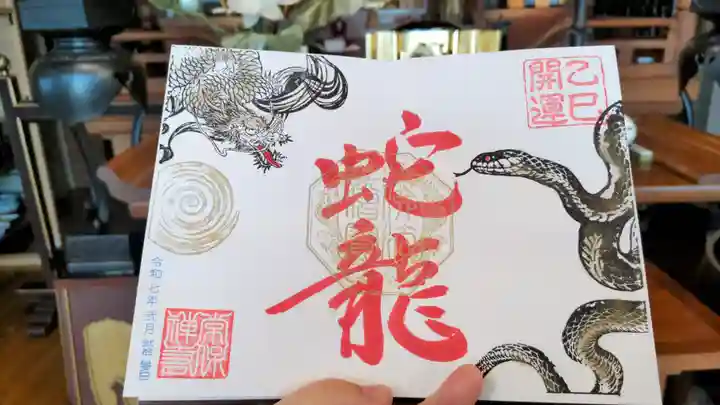 乙巳
開運
蛇龍
令和七年弐月
宗保
禅寺